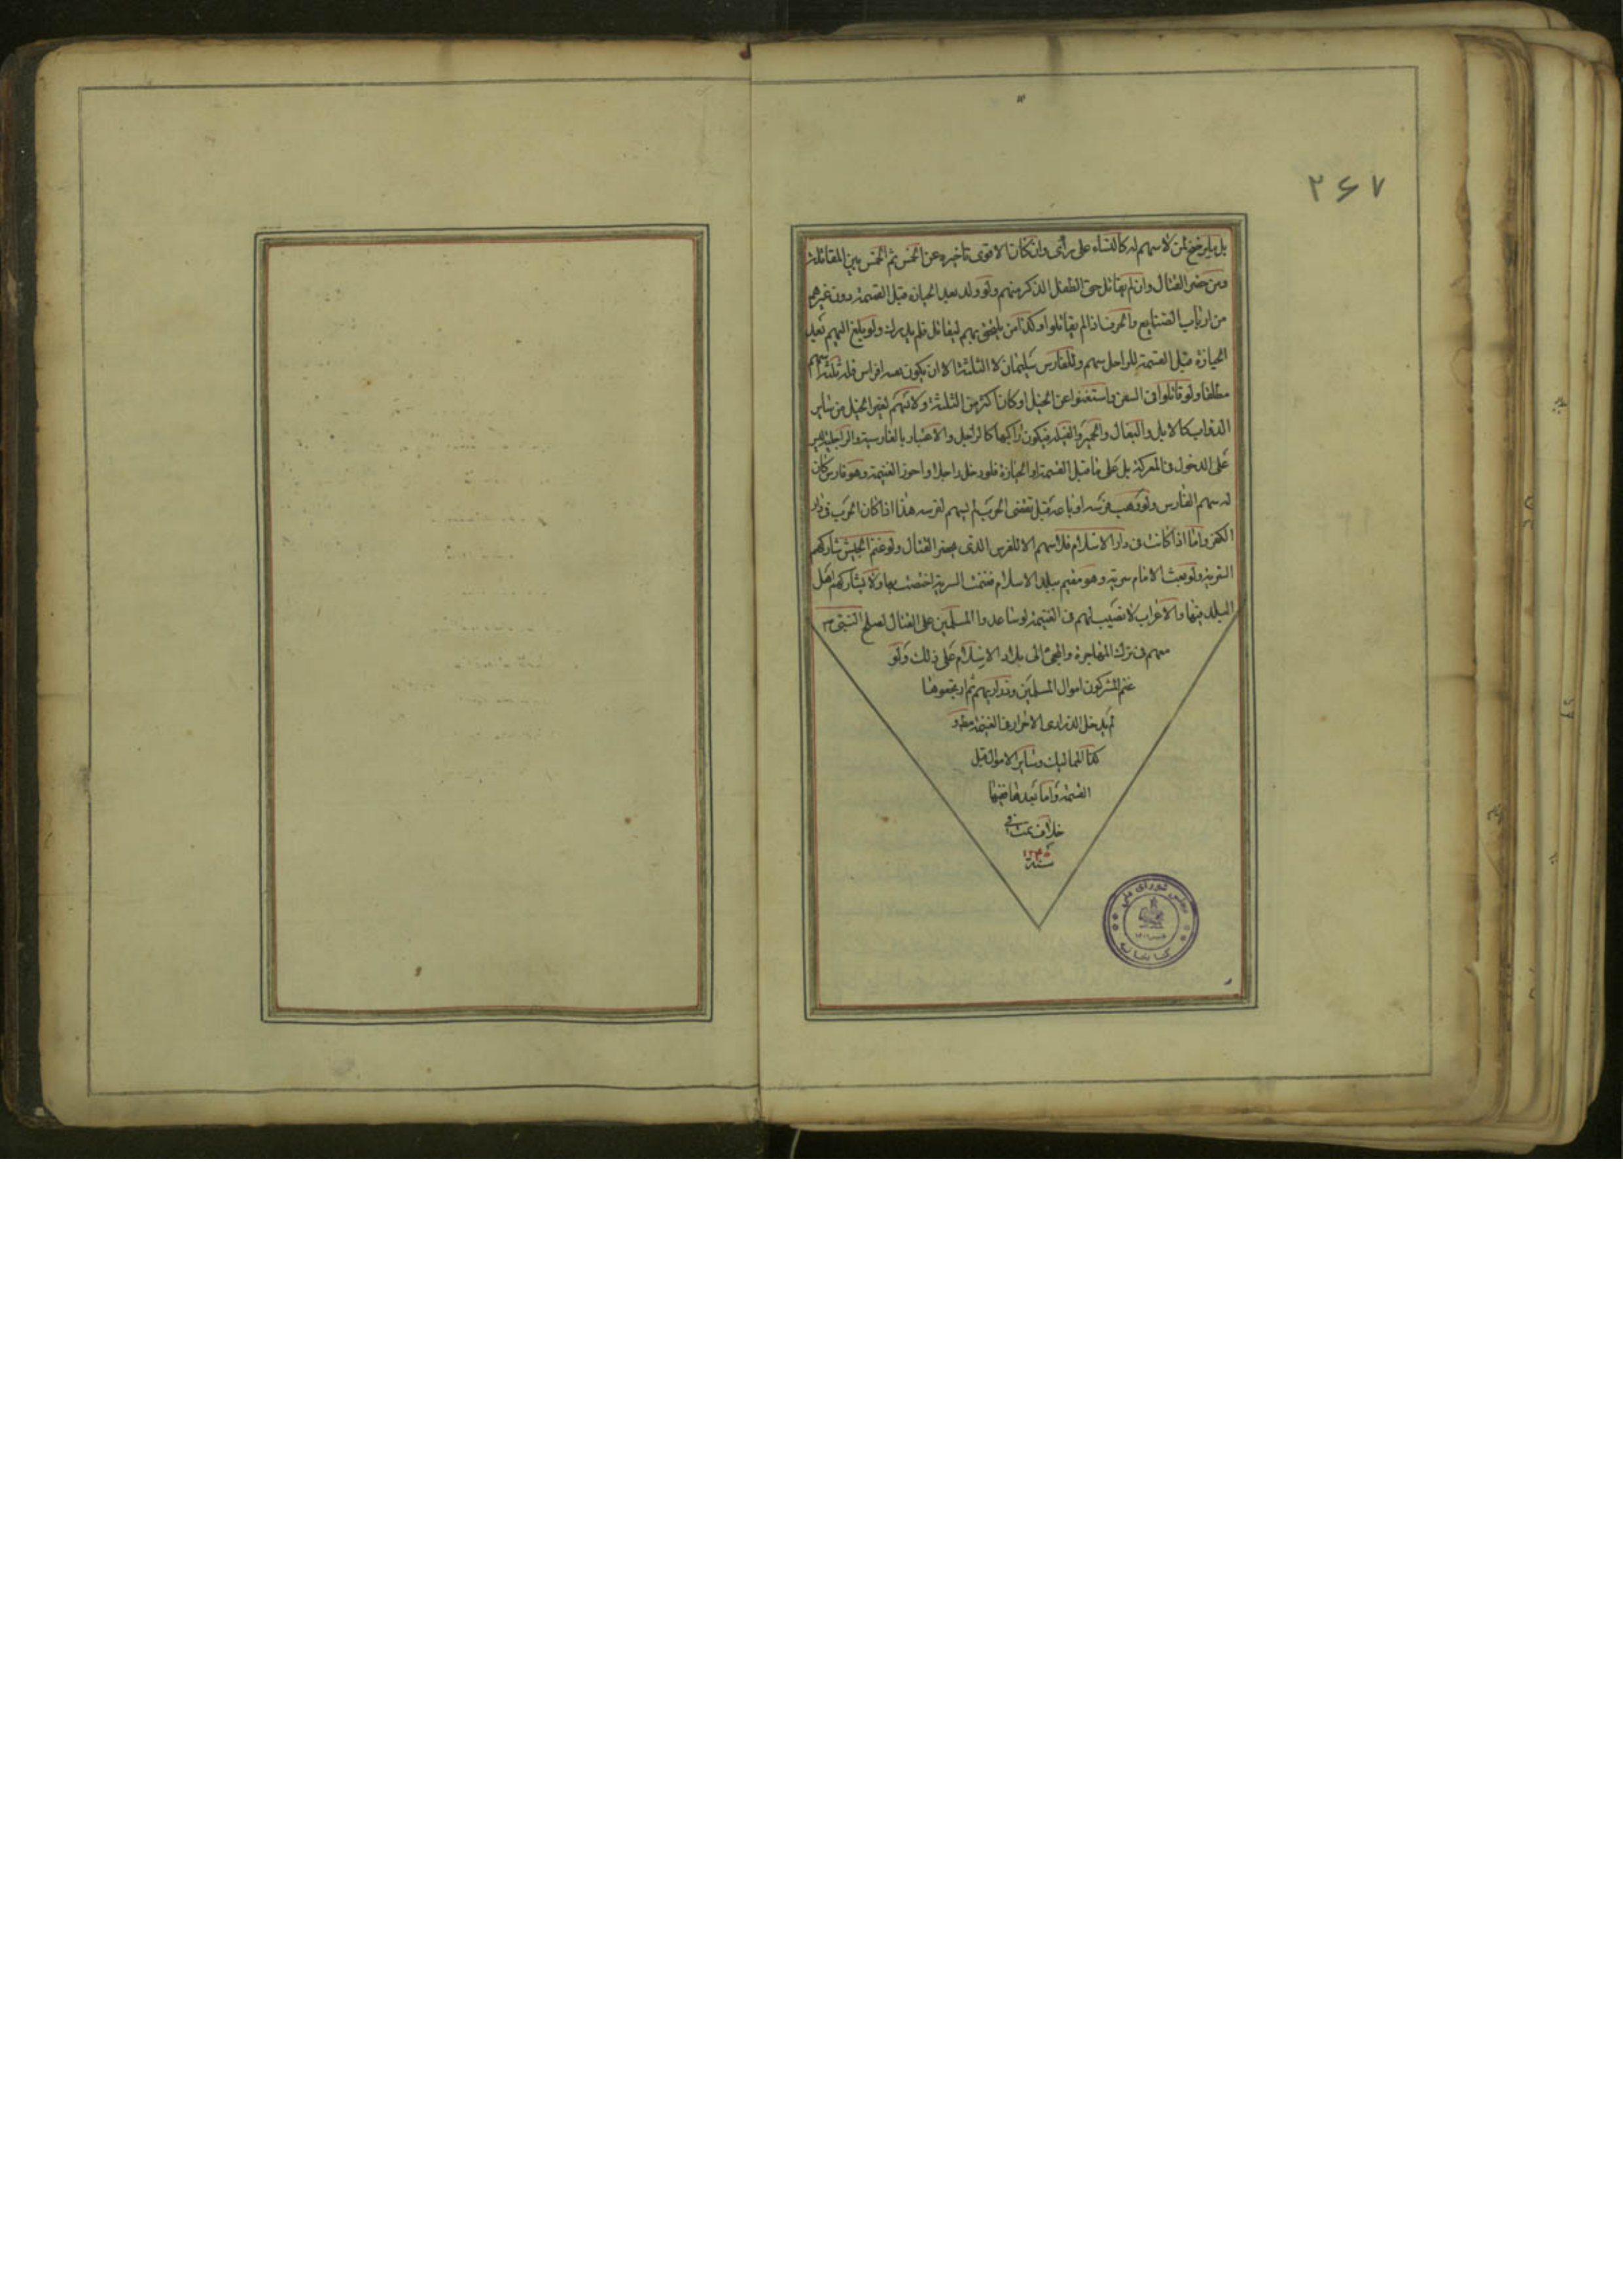 ۲۶۷
بل بما يرضخ لمن لا سهم له كالنساء على رأى وان كان الاقوى تاخيره عن الخمس ثم الخمس بين المقاتلة
ومن حضر القتال وان لم يقاتل حتى الطفل الذكر منهم ولو ولد بعد الحيازة قبل القسمة دون غيرهم
من ارباب الصنايع والحرف اذا لم يقاتلوا وكذا من يلحق بهم ليقاتل فلم يدرك ولو بلغ اليهم بعد
الحيازة قبل القسمة للراجل سهم وللفارس سهمان لا الثلثة الا ان يكون معه افراس فله ثلثة اسهم
مطلقا ولو قاتلوا فى السفن واستغنوا عن الخيل او كان اكثر من الثلثة ولا يسهم لغير الخيل من ساير
الدواب كالابل والبغال والحمير والفيلة فيكون راكبها كالراجل والاعتبار بالفارسية والراجلية ليس
على الدخول فى المعركة بل على ما قبل القسمة او الحيازة فلو دخل راجلا واحوز الغنيمة وهو فارس كان
له سهم الفارس ولو وهب فرسه او باعه قبل تقضى الحرب لم يسهم لفرسه هذا اذا كان الحرب فى دار
الكفر واما اذا كانت فى دار الاسلام فلا سهم الا للفرس الذى يحضر القتال ولو غنم الجيش شاركهم
السرية ولو بعث الامام سرية وهو مقيم ببلد الاسلام فغنمت السرية اختصت بها ولا يشاركهم اهل
البلد فيها والاعراب لا نصيب لهم فى الغنيمة لو ساعدوا المسلمين على القتال لصلح النبى ص
معهم فى ترك المهاجرة والمجئ الى بلاد الاسلام على ذلك ولو
غنم المشركون اموال المسلمين وذراريهم ثم ارتجعوها
لم يدخل الذرارى الاحرار فى الغنيمة مط و
كذا المماليك وساير الاموال قبل
القسمة واما بعدها ففيها
خلاف تمت فى
سنة ۱۲۳۵
مجلس شورای ملی
کتابخانه